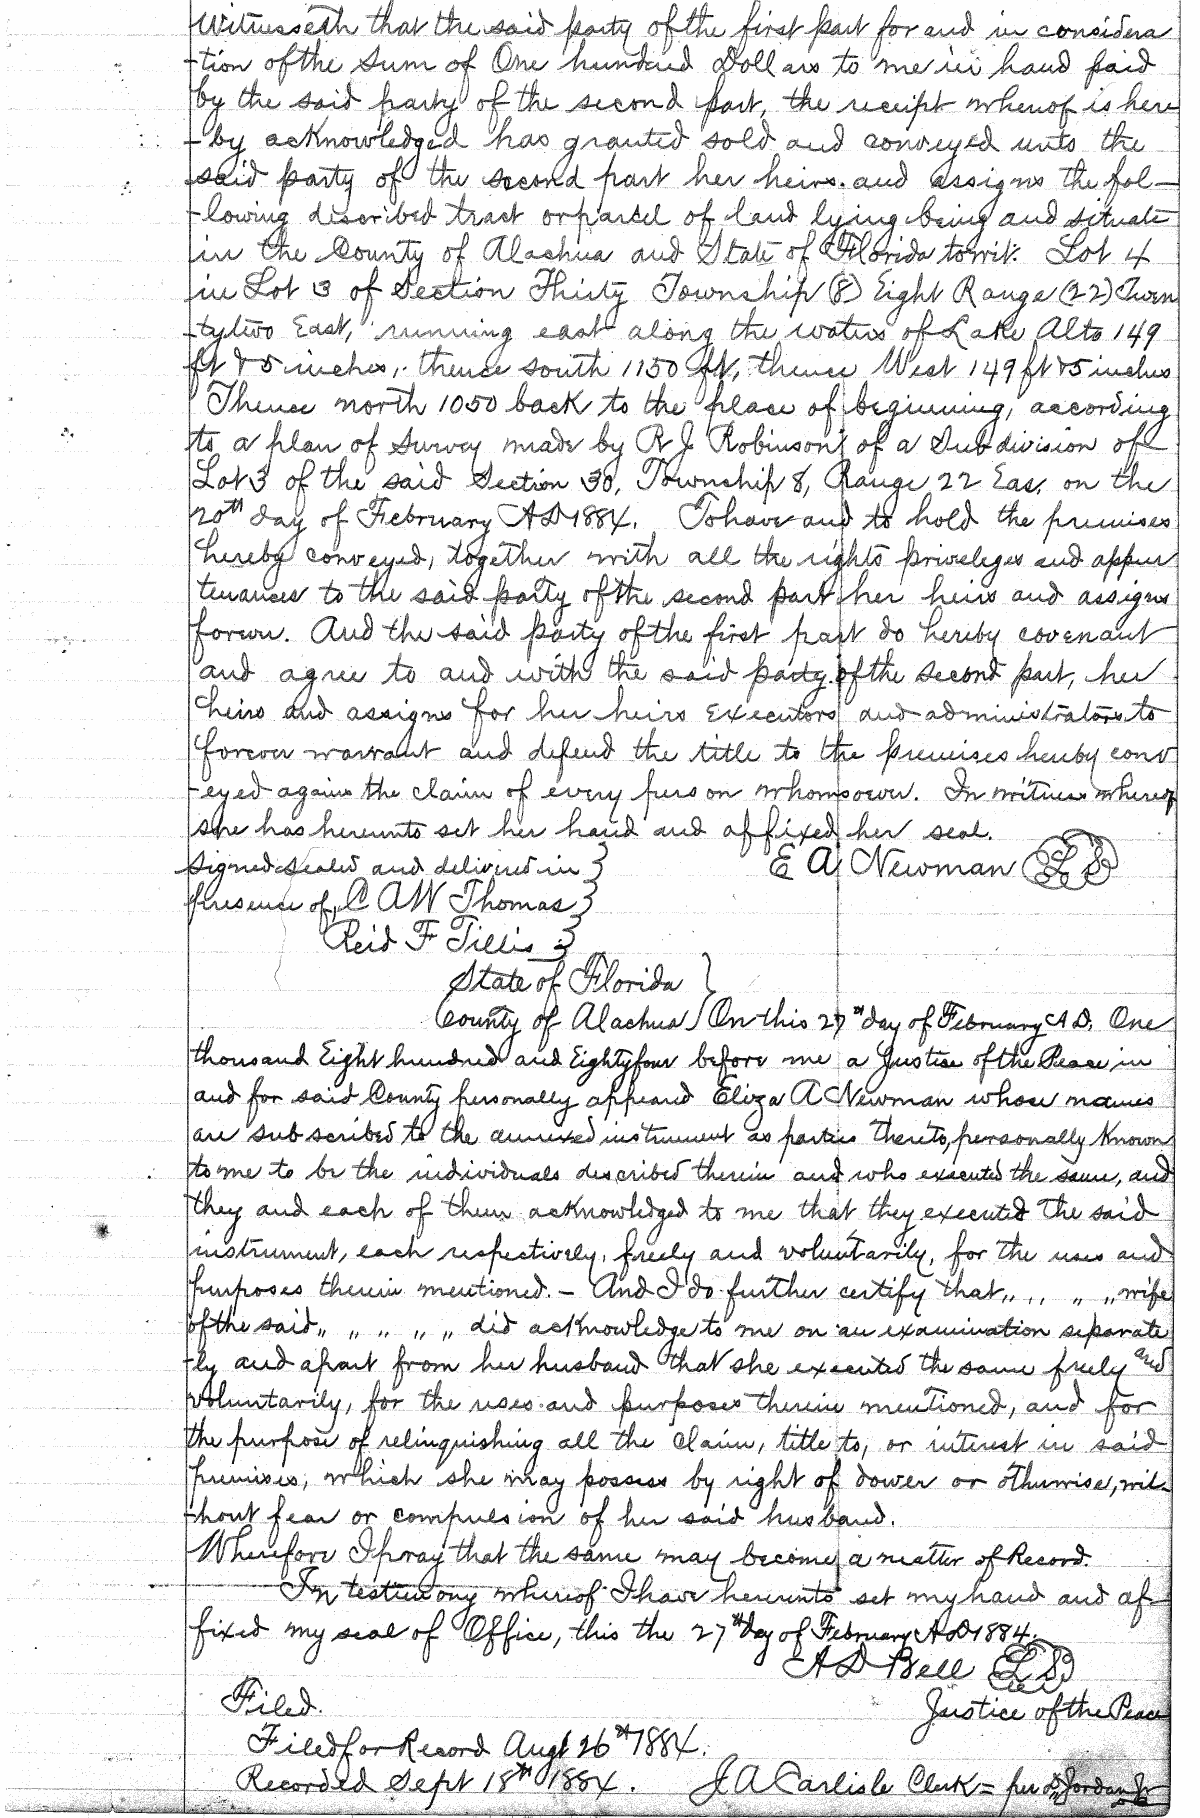 Witnesseth that the said party of the first part for and in considera
-tion of the sum of One hundred Dollars to me in hand paid
by the said party of the second part, the receipt whereof is here
-by acknowledged has granted sold and conveyed unto the
said party of the second part her heirs and assigns the fol-
-lowing described tract or parcel of land lying being and situate
in the County of Alachua and State of Florida towit: Lot 4
in Lot 3 of Section Thirty Township (8) Eight Range (22) Twen
-tytwo East, running east along the waters of Lake Alto 149
ft & 5 inches, thence south 1150 ft, thence West 149 ft & 5 inches
Thence north 1050 back to the place of beginning, according
to a plan of survey made by R J Robinson of a Subdivision of
Lot 3 of the said Section 30, Township 8, Range 22 Eas. on the
20th day of February AD 1884. To have and to hold the premises
hereby conveyed, together with all the rights priveleges and appur
tenances to the said party of the second part her heirs and assigns
forever. And the said party of the first part do hereby covenant
and agree to and with the said party of the second part, her
heirs and assigns for her heirs Executors and administrators to
forever warrant and defend the title to the premises hereby conv
-eyed agains the claim of every person whomsoever. In witness whereof
she has hereunto set her hand and affixed her seal.
Signed sealed and delivered in } E A Newman LS
presence of, C A W Thomas }
Reid F Tillis }
State of Florida }
County of Alachua } On this 27th day of February A.D. One
thousand Eight hundred and Eightyfour before me a Justice of the Peace in
and for said County personally appeared Eliza A Newman whose names
are subscribed to the annexed instrument as parties thereto, personally known
to me to be the individuals described therein and who executed the same, and
they and each of them acknowledged to me that they executed the said
instrument, each respectively, freely and voluntarily, for the uses and
purposes therein mentioned. - And I do further certify that " " " " wife
of the said " " " " " did acknowledge to me on an examination separate
-ly and apart from her husband that she executed the same freely and
voluntarily, for the uses and purposes therein mentioned, and for
the purpose of relinquishing all the claim, title to, or interest in said
premises, which she may possess by right of dower or otherwise, wit-
-hout fear or compulsion of her said husband.
Wherefore I pray that the same may become a matter of Record.
In testimony whereof I have hereunto set my hand and af-
fixed my seal of Office, this the 27th day of February AD 1884.
A D Bell LS
Filed. Justice of the Peace
Filed for Record Augt 26th 1884.
Recorded Sept 18th 1884. J A Carlisle Clerk = per Jordan Jr